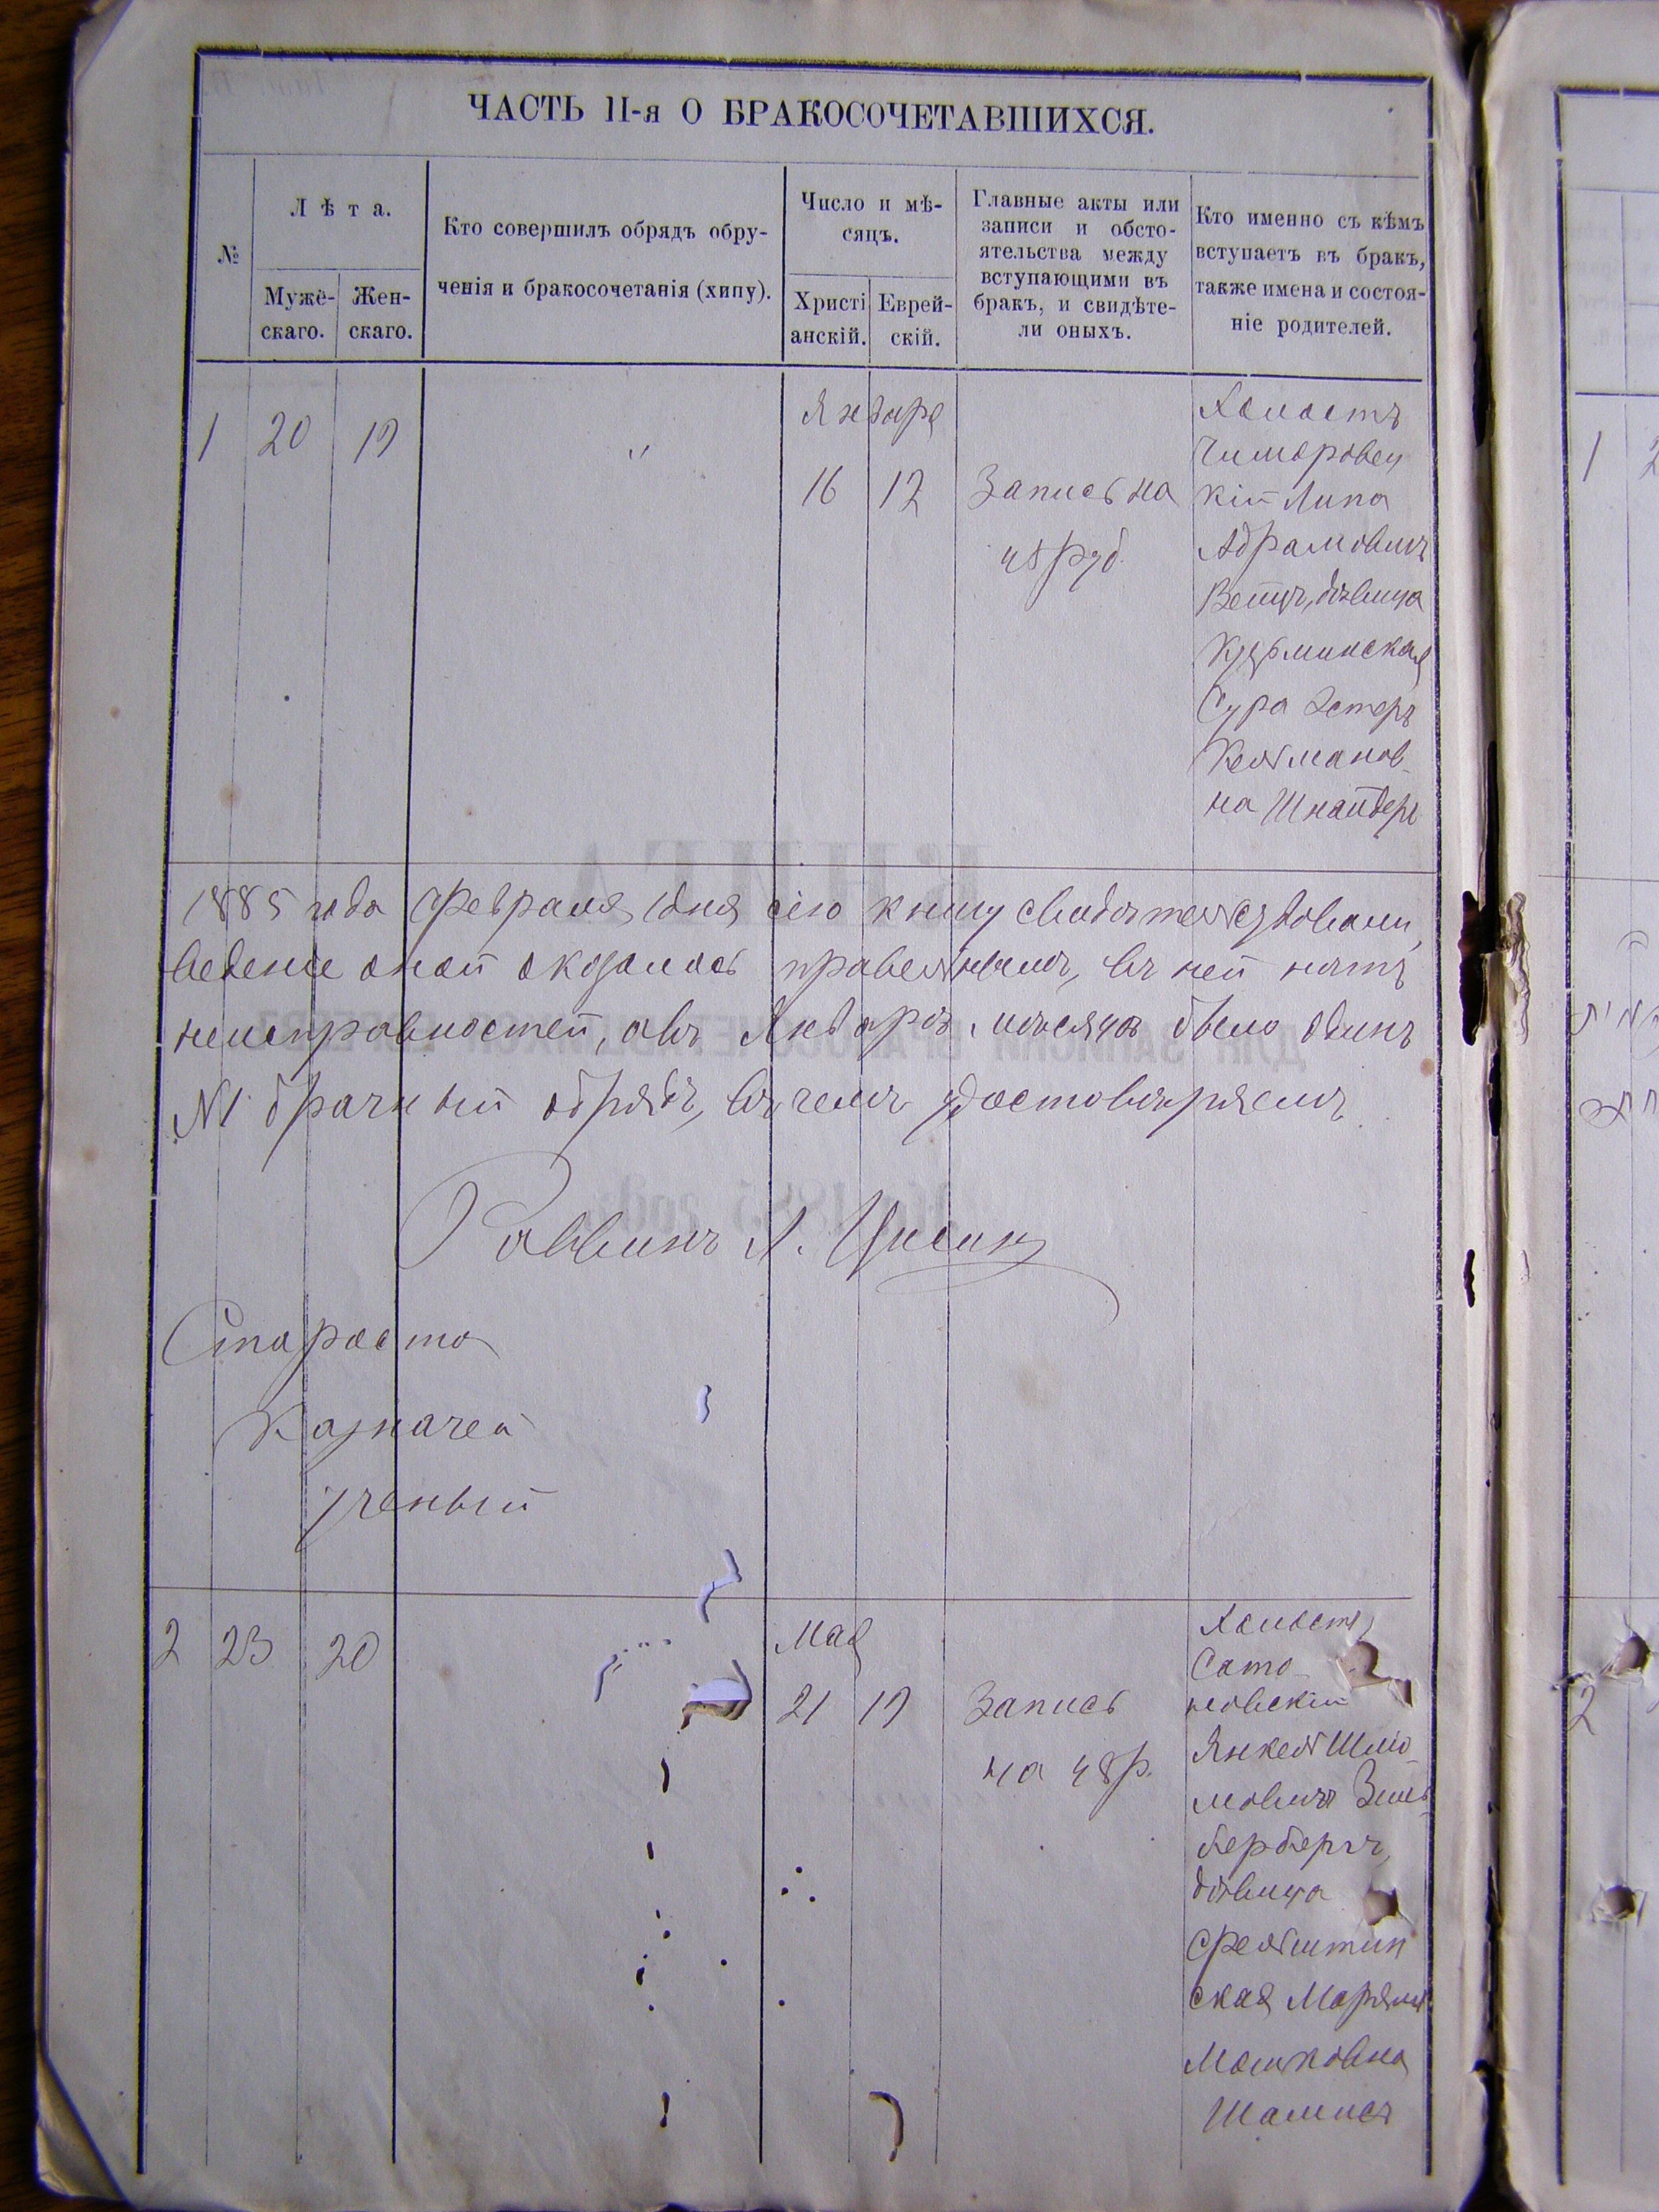 ЧАСТЬ II-я О БРАКОСОЧЕТАВШИХСЯ.
№
Лѣта.
Мужё-
скаго.
Жен-
скаго.
Кто совершилъ обрядъ обру-
ченія и бракосочетанія (хипу).
Число и мѣ-
сяцъ.
Христі
анскій.
Еврей-
скій.
Главные акты или
записи и обсто-
ятельства между
вступающими въ
бракъ, и свидѣте-
ли оныхъ.
Кто именно съ кѣмъ
вступаетъ въ бракъ,
также имена и состоя-
ніе родителей.
1 20 19 "
Января
16 12
Запись на
48 руб.
Холостъ
Чемеровец
кій Липа
Абрамовичъ
дѣвица
Кузьминская
Сура Эстеръ
Кельманов-
на Шнайдеръ
1885 года Февраля 1 дня сію книгу свидѣтельствовали,
веденіе оной оказалось правельнымъ, въ ней нѣтъ
неисправностей, а въ Январѣ мѣсяцѣ было одинъ
№1 брачный обрядъ, въ чемъ удостовѣряемъ
Раввинъ Л.
Староста
Казначей
Ученый
2 23 20
Мая
21 19
Запись
на 48 р.
Холостъ,
Сата-
новскій
Янкель Шлио-
мовичъ Зиль-
берберъ,
дѣвица
Фельштин
ская Марьямъ
Мошковна
Шамисъ
1
2
2